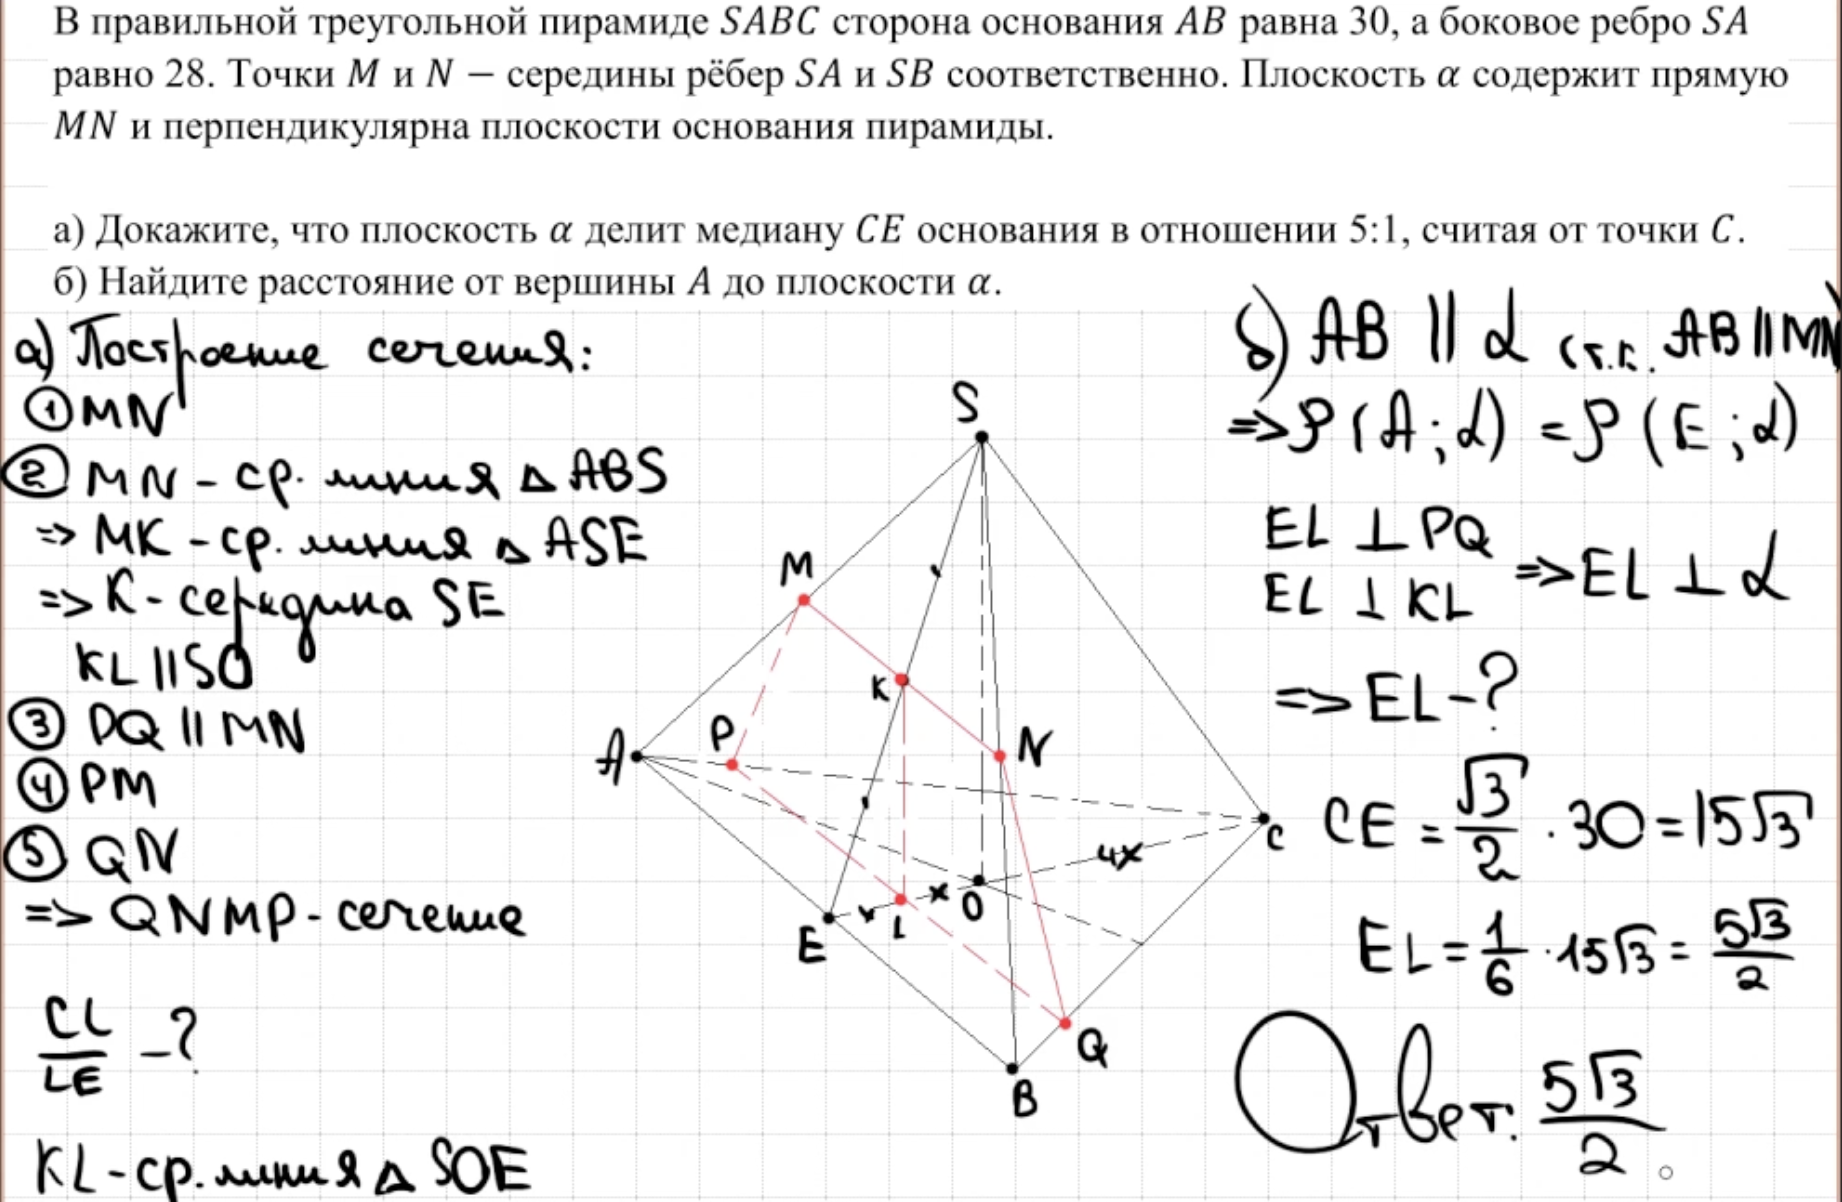 В правильной треугольной пирамиде SABC сторона основания AB равна 30, а боковое ребро SA
равно 28. Точки M и N − середины рёбер SA и SB соответственно. Плоскость α содержит прямую
MN и перпендикулярна плоскости основания пирамиды.
а) Докажите, что плоскость α делит медиану CE основания в отношении 5:1, считая от точки C.
б) Найдите расстояние от вершины A до плоскости α.
а) Построение сечения:
① MN
② MN - ср. линия △ ABS
=> MK - ср. линия △ ASE
=> K - середина SE
KL || SO
③ PQ || MN
④ PM
⑤ QN
=> QNMP - сечение
CL/LE - ?
KL - ср. линия △ SOE
S
M
K
N
A
P
C
4x
x
O
x
L
E
Q
B
б) AB || α (т.к. AB || MN)
=> ρ(A; α) = ρ(E; α)
EL ⊥ PQ
EL ⊥ KL
=> EL ⊥ α
=> EL - ?
CE = √3/2 · 30 = 15√3
EL = 1/6 · 15√3 = 5√3/2
Ответ: 5√3/2.